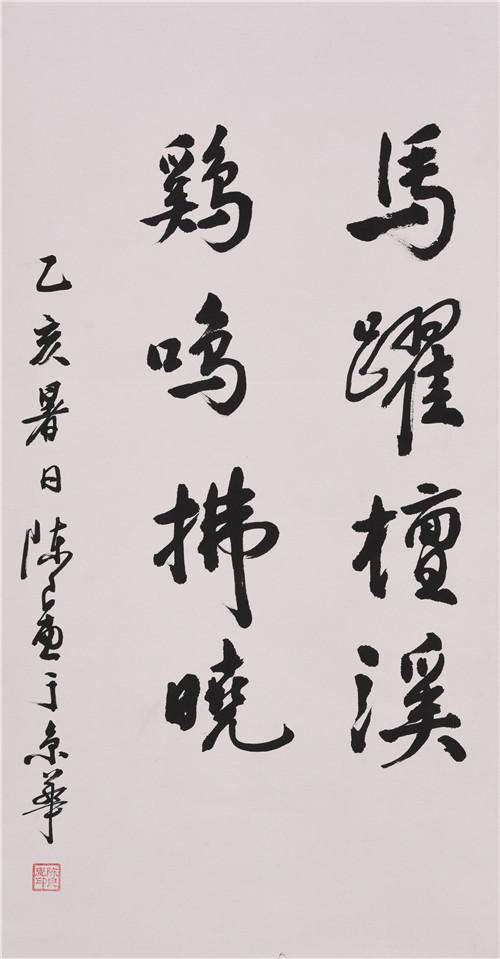 馬躍檀溪
鷄鳴拂曉
乙亥暑日陳惠于京華